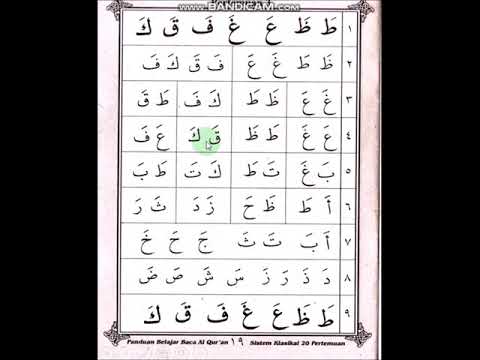 www.BANDICAM.com
١ طَ ظَ عَ غَ فَ قَ كَ
٢ ظَ طَ غَ عَ فَ قَ كَ فَ
٣ غَ عَ ظَ طَ كَ فَ طَ قَ
٤ عَ غَ طَ ظَ قَ كَ عَ فَ
٥ بَ غَ تَ طَ كَ تَ طَ بَ
٦ أَ طَ ظَ حَ زَ دَ ثَ رَ
٧ أَ بَ تَ ثَ جَ حَ خَ
٨ دَ ذَ رَ زَ سَ شَ صَ ضَ
٩ طَ ظَ عَ غَ فَ قَ كَ
Panduan Belajar Baca Al Qur'an ١٩ Sistem Klasikal 20 Pertemuan